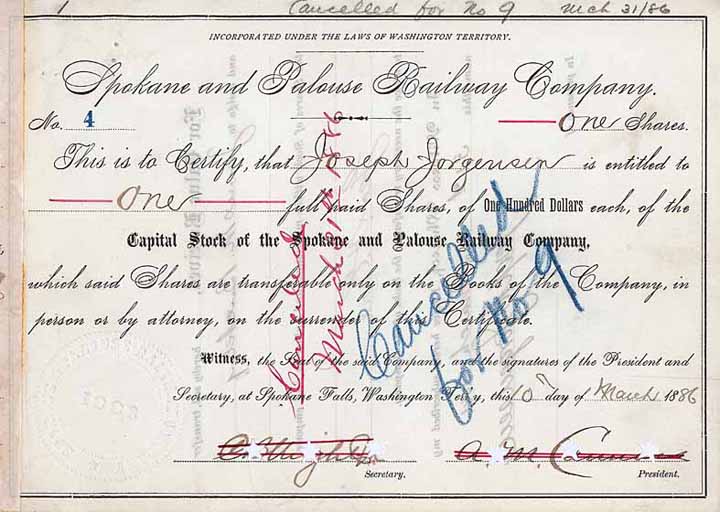 1 Cancelled for No 9 Mch 31/86
INCORPORATED UNDER THE LAWS OF WASHINGTON TERRITORY.
Spokane and Palouse Railway Company.
No. 4 One Shares.
This is to Certify, that Joseph Jorgensen is entitled to
One full paid Shares, of One Hundred Dollars each, of the
Capital Stock of the Spokane and Palouse Railway Company,
which said Shares are transferable only on the Books of the Company, in
person or by attorney, on the surrender of this Certificate.
Witness, the Seal of the said Company, and the signatures of the President and
Secretary, at Spokane Falls, Washington Ter'y, this 10th day of March 1886
Secretary. President.
Canceled
March 31st 1886
Cancelled
for No 9